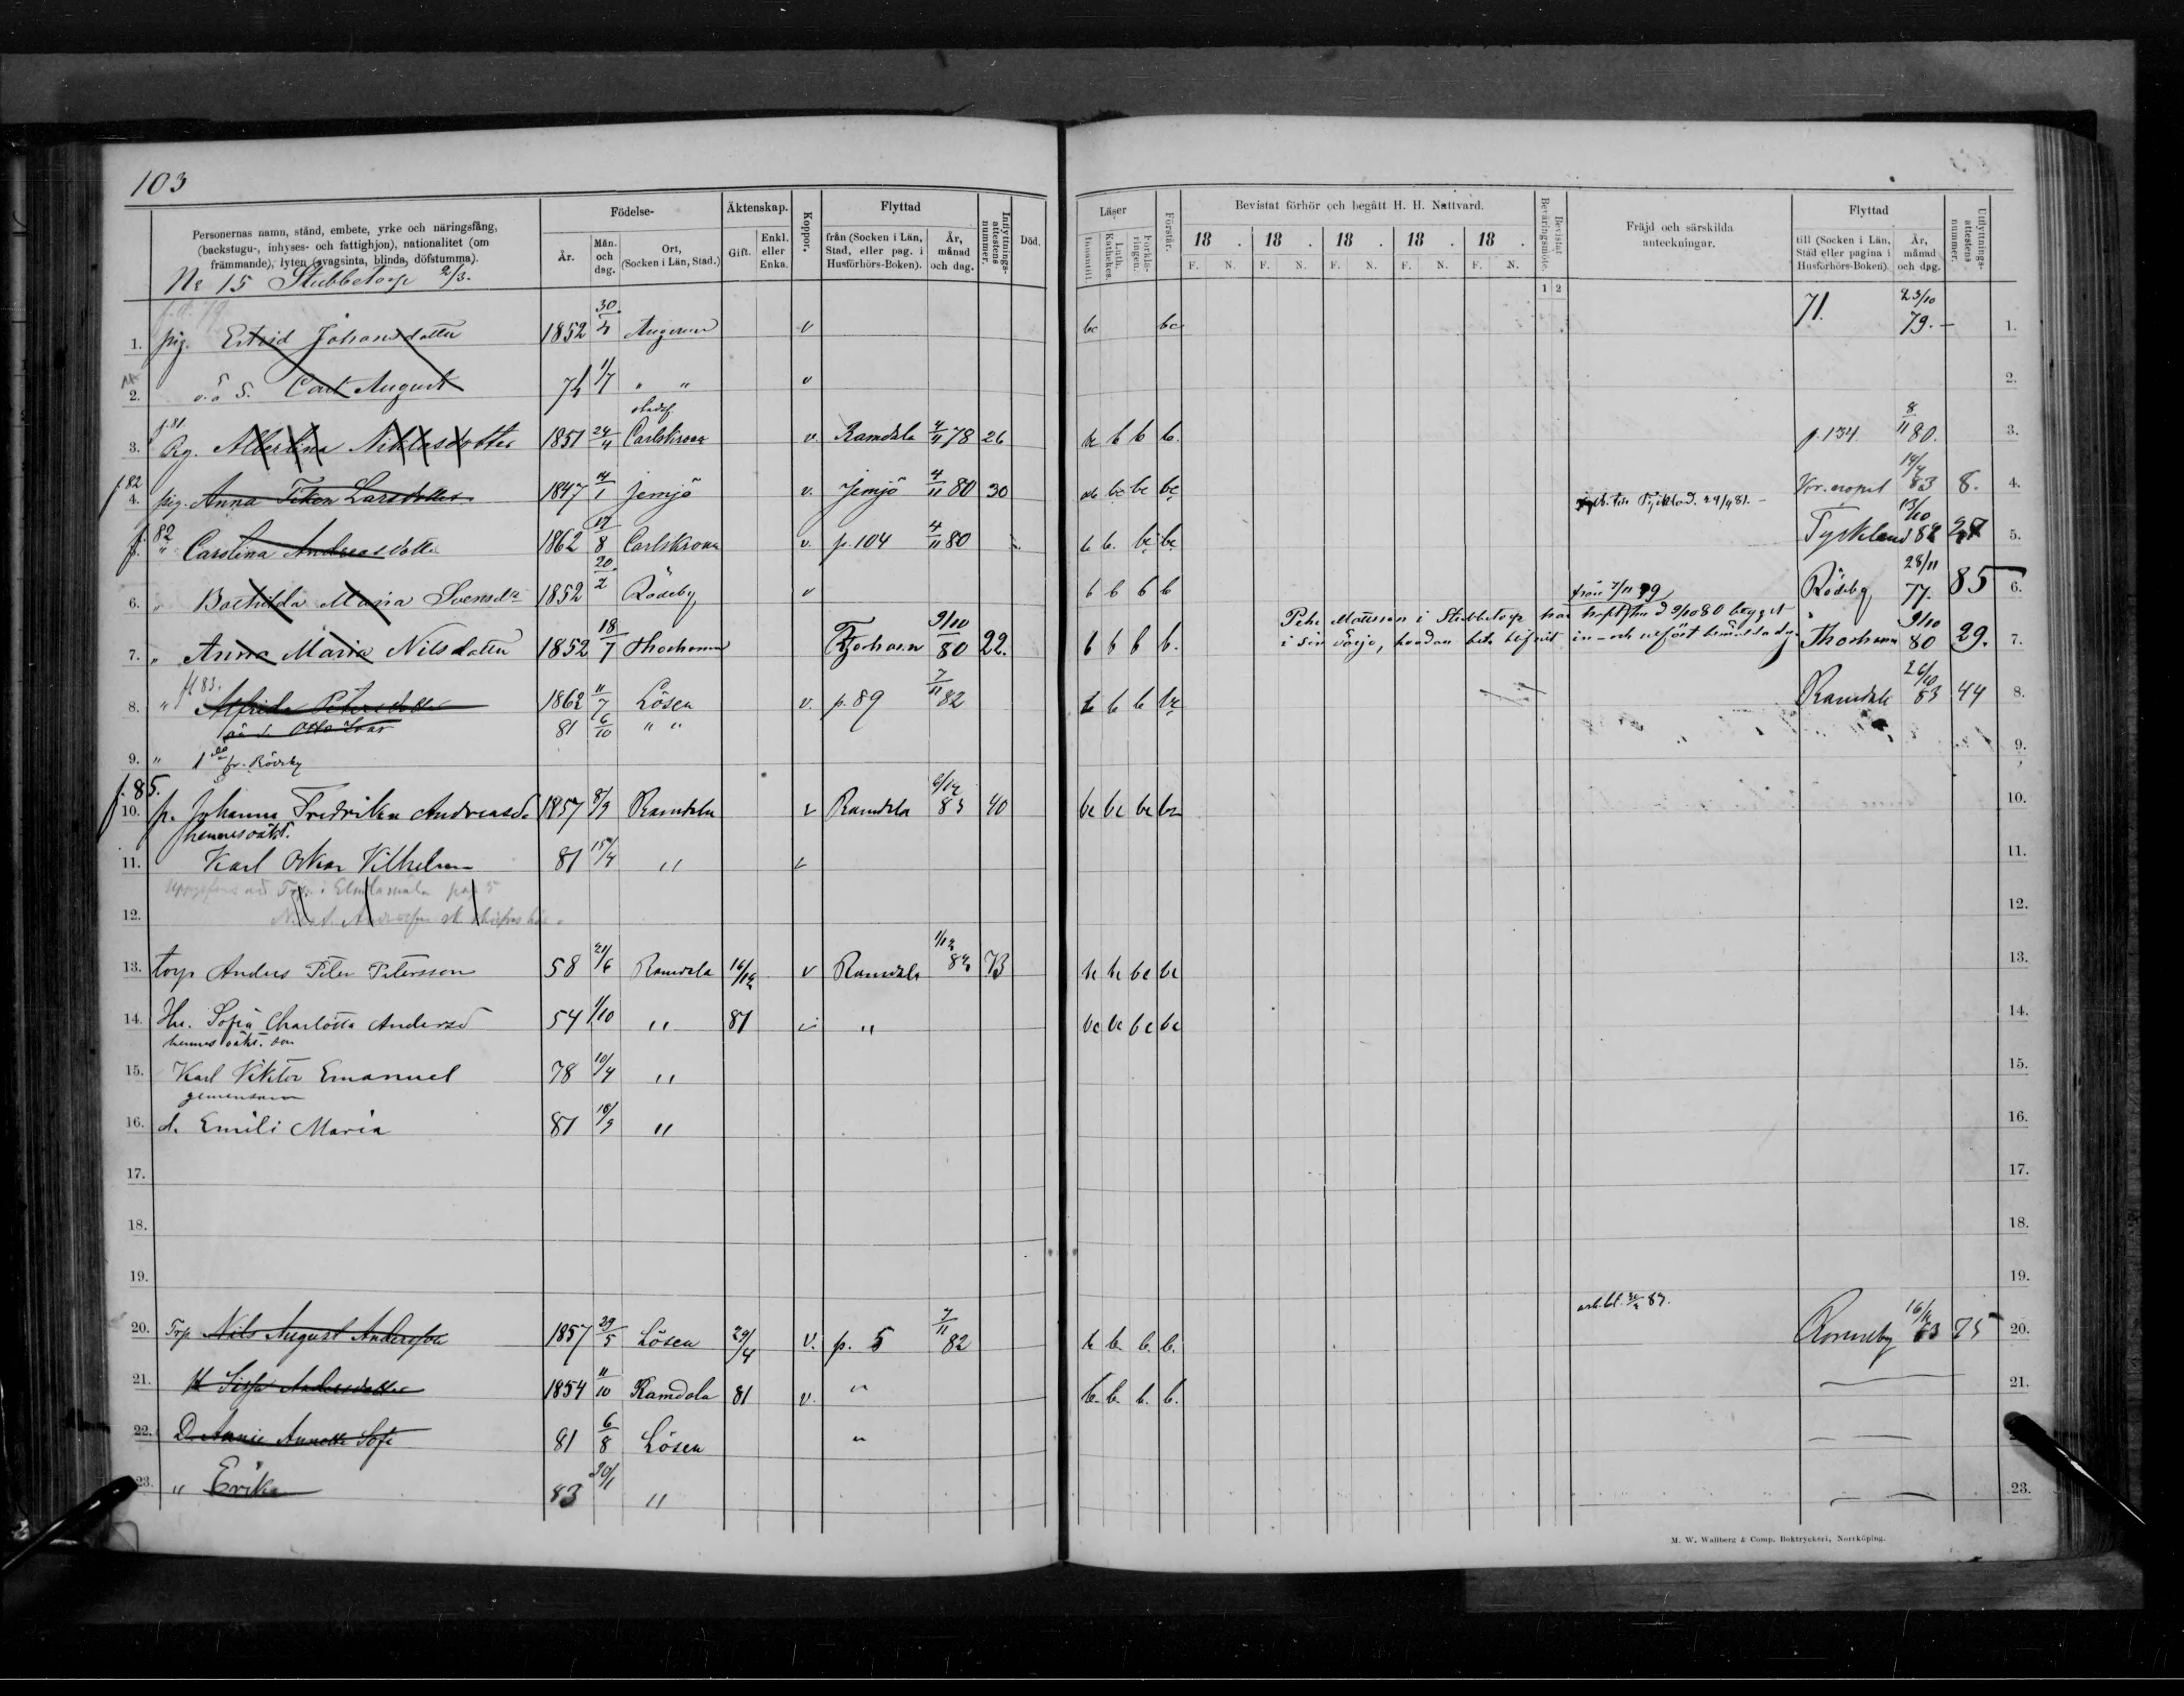 103
Personernas namn, stånd, embete, yrke och näringsfång, (backstugu-, inhyses- och fattighjon), nationalitet (om främmande), lyten (svagsinta, blinda, döfstumma).
Födelse-
År.
Mån. och dag.
Ort, (Socken i Län, Stad.)
Äktenskap.
Gift.
Enkl. eller Enka.
Koppor.
Flyttad
från (Socken i Län, Stad, eller pag. i Husförhörs-Boken).
År, månad och dag.
Inflyttnings-attestens nummer.
Död.
Läser
Innantill.
Luth. Kathekes.
Förklaringen.
Förstår.
Bevistat förhör och begått H. H. Nattvard.
18 . 18 . 18 . 18 . 18 .
F. N. F. N. F. N. F. N. F. N.
Bevistat Beväringsmöte.
1 2
Fräjd och särskilda anteckningar.
Flyttad
till (Socken i Län, Stad eller pagina i Husförhörs-Boken).
År, månad och dag.
Utflyttnings-attestens nummer.
No 15 Stubbetorp 2/3.
1. pig. Estrid Johansdotter 1852 30/4 Augerum v bc bc 71. 23/10 79. 1.
2. o.ä S. Carl August 74 1/7 " " v 2.
f.81.
3. Pig. Albertina Niklasdotter 1851 24/4 stadsf. Carlskrona v. Ramdala 4/11 78 26 b b b. p. 134 8/11 80. 3.
f 82
4. pig. Anna Larsdotter 1847 14/1 Jemjö v. Jemjö 4/11 80 30 bc bc bc till Tyskland 24/9 81. 14/4 83 8. 4.
f. 82
5. " Carolina Andreasdotter 1862 17/8 Carlskrona v. p. 104 4/11 80 b b. bc bc Tyskland 13/10 82 5.
6. " Bothilda Maria Svensdr 1852 20/2 Rödeby v b b b b från 7/11 79 Rödeby 28/11 77. 85 6.
Pehr Mattisson i Stubbetorp har 9/10 80 bygget
7. " Anna Maria Nilsdotter 1852 18/7 Thorhamn Torhamn 9/10 80 22. b b b b. i sin in- och Thorhamn 9/10 80 29. 7.
fl 83.
8. " Alfrida Petersdotter 1862 11/7 Lösen v. p. 89 7/11 82 b b b bc Ramdala 26/10 83 44 8.
oä s Otto 81 6/10 " "
9. " 1 fr. Rödeby 9.
f. 85.
10. p. Johanna Fredrika Andreasd. 1857 8/9 Ramdala v Ramdala 6/12 83 40 bc bc bc bc 10.
hennes oäkt.
11. Karl Oskar Vilhelm 81 15/4 " v 11.
12. 12.
13. torp Anders Peter Petersson 58 21/6 Ramdala 16/12 v Ramdala 1/12 84 73 bc bc bc bc 13.
14. Hu. Sofia Charlotta Andersd 54 1/10 " 81 v " bc bc bc bc 14.
hennes oäkt. son
15. Karl Viktor Emanuel 78 10/4 " 15.
gemensam
16. d. Emili Maria 81 18/9 " 16.
17. 17.
18. 18.
19. 19.
20. Trp Nils August Andersson 1857 29/5 Lösen 29/4 v. p. 5 7/11 82 b b. b. b. Ronneby 16/11 83 75 20.
21. H Sissa Andersdotter 1854 11/10 Ramdala 81 v. " b. b. b. b. 21.
22. D. Annie Annette Sofi 81 6/8 Lösen "
23. " Erika 83 20/1 " 23.
M. W. Wallberg & Comp. Boktryckeri, Norrköping.